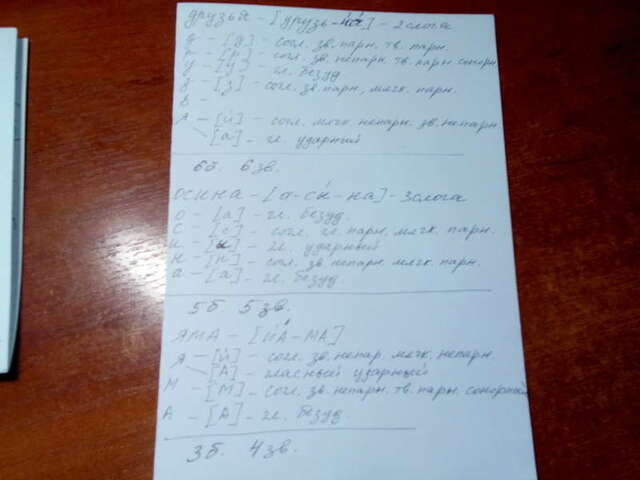 друзья - [друзь-йа] - 2 слога
д - [д] - согл. зв. парн. тв. парн.
р - [р] - согл. зв. непарн. тв. парн. сонорн
у - [у] - гл. безуд
з - [з] - согл. зв. парн, мягк. парн.
ь -
я - [й] - согл. мягк. непарн. зв. непарн
[а] - гл. ударный
6б. 6зв.
осина - [а-си-на] - 3слога
о - [а] - гл. безуд.
с - [с] - согл. гл. парн. мягк. парн.
и - [и] - гл. ударный
н - [н] - согл. зв. непарн. мягк. парн.
а - [а] - гл. безуд.
5б 5зв.
ЯМА - [ЙА-МА]
я - [й] - согл. зв. непар. мягк. непарн.
[А] - гласный ударный
М - [М] - согл. зв. непарн. тв. парн. сонорный
А - [А] - гл. безуд.
3б. 4зв.